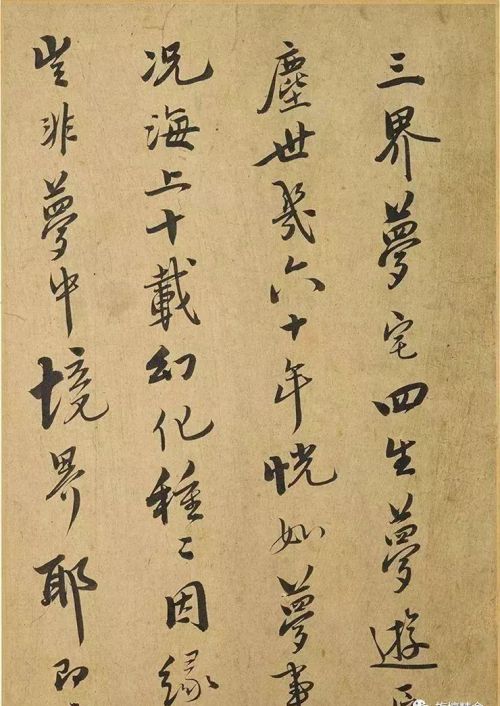 三界夢宅四生夢遊
塵世幾六十年恍如夢事
况海上十載幻化種〻因緣
豈非夢中境界耶即